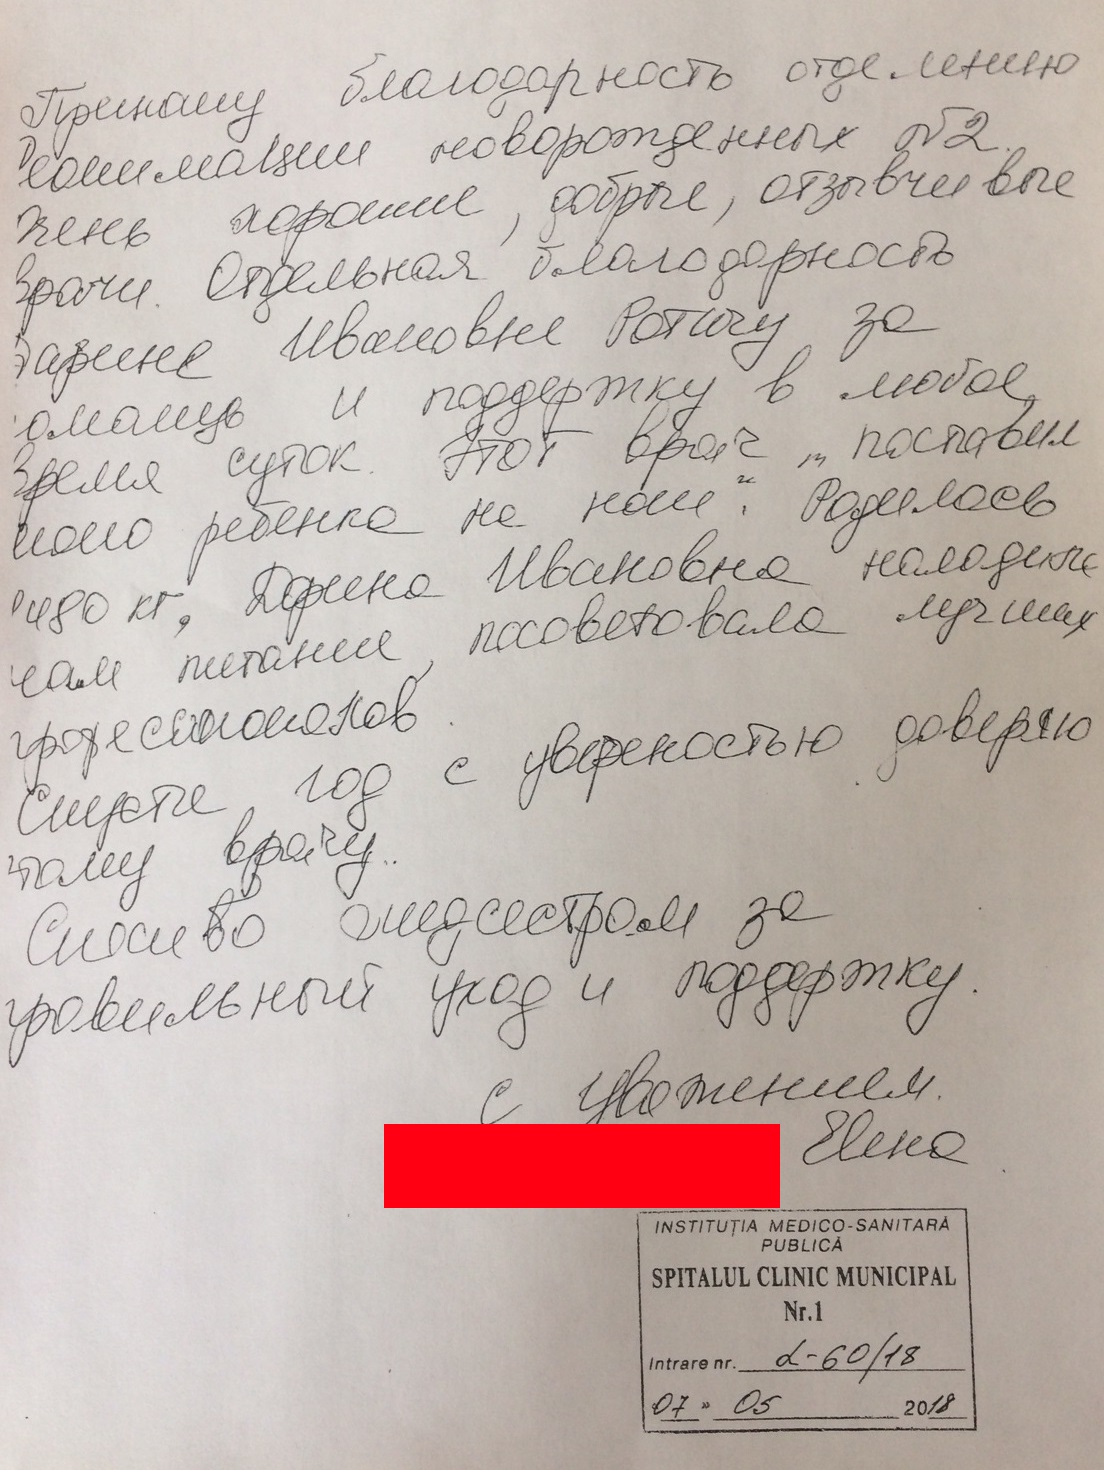 Приношу благодарность отделению
реанимации новорожденных №2.
чень хорошие, добрые, отзывчивые
врачи. Отдельная благодарность
Дарине Ивановне Ротичу за
омощь и поддержку в любое
время суток. Этот врач „поставил
моего ребенка на ноги“. Родилась
480 кг, Дарина Ивановна наладила
нам питание, посоветовала лучших
профессионалов.
Спустя год с увереностью доверяю
этому врачу..
Спасибо медсестрам за
правильный уход и поддержку.
с уважением.
Elena
INSTITUŢIA MEDICO-SANITARĂ
PUBLICĂ
SPITALUL CLINIC MUNICIPAL
Nr.1
Intrare nr. L-60/18
07 » 05 2018